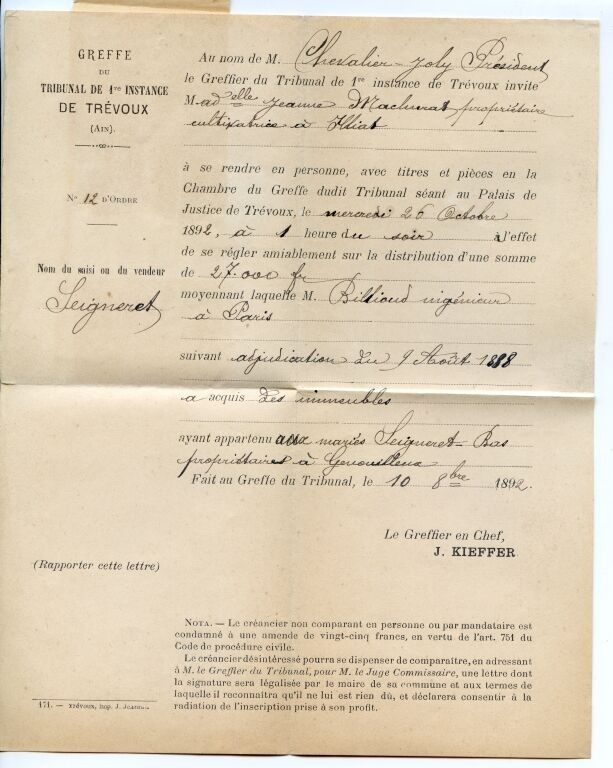 GREFFE
DU
TRIBUNAL DE 1re INSTANCE
DE TRÉVOUX
(AIN).
N° 12 D'ORDRE
Nom du saisi ou du vendeur
Seigneret
Au nom de M. Chevalier-Joly Président
le Greffier du Tribunal de 1re instance de Trévoux invite
Mad elle Jeanne Machurat propriétaire
cultivatrice à Illiat
à se rendre en personne, avec titres et pièces en la
Chambre du Greffe dudit Tribunal séant au Palais de
Justice de Trévoux, le mercredi 26 Octobre
1892, à 1 heure du soir à l'effet
de se régler amiablement sur la distribution d'une somme
de 27.000 fr
moyennant laquelle M. Billioud ingénieur
à Paris
suivant adjudication du 9 Août 1888
a acquis des immeubles
ayant appartenu aux mariés Seigneret-Bas
propriétaires à Genouilleux
Fait au Greffe du Tribunal, le 10 8bre 1892.
Le Greffier en Chef,
J. KIEFFER
(Rapporter cette lettre)
NOTA. — Le créancier non comparant en personne ou par mandataire est
condamné à une amende de vingt-cinq francs, en vertu de l'art. 751 du
Code de procédure civile.
Le créancier désintéressé pourra se dispenser de comparaître, en adressant
à M. le Greffier du Tribunal, pour M. le Juge Commissaire, une lettre dont
la signature sera légalisée par le maire de sa commune et aux termes de
laquelle il reconnaîtra qu'il ne lui est rien dû, et déclarera consentir à la
radiation de l'inscription prise à son profit.
171. — Trévoux, imp. J.